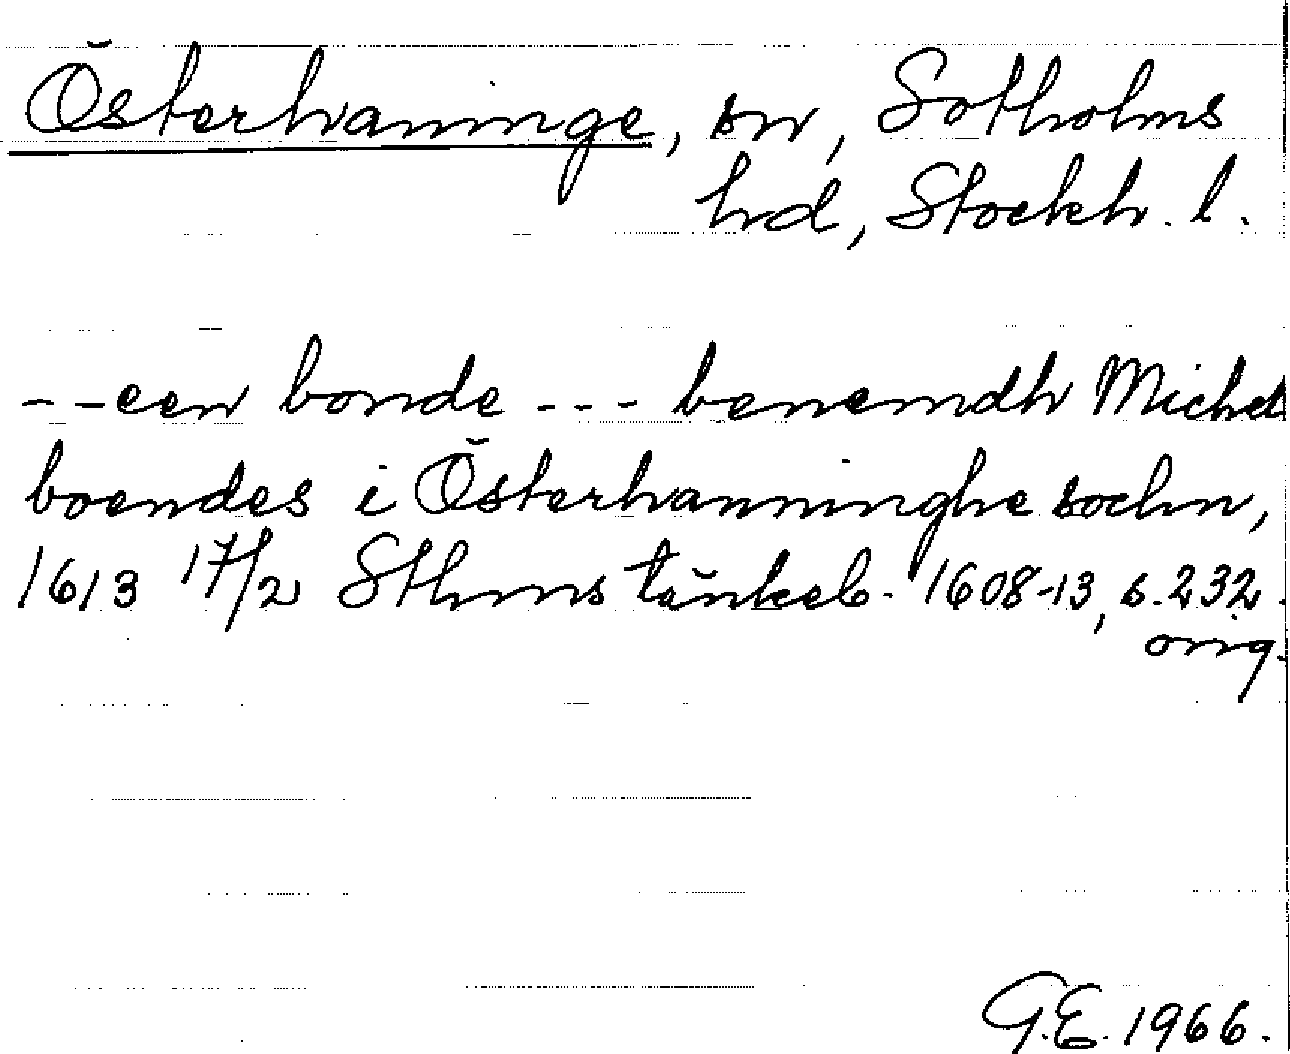 Österhaninge, sn, Sotholms
hd, Stockh. l.
--een bonde --- benemdh Michel
boendes i Österhanninghe sochn,
1613 17/2 Sthms tänkeb. 1608-13, s. 232.
orig.
G.E. 1966.